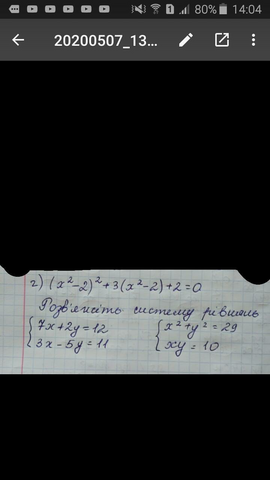 80% 14:04
20200507_13...
г) (x²-2)²+3(x²-2)+2=0
Розв'яжіть систему рівнянь
{7x+2y=12
3x-5y=11
{x²+y²=29
xy=10